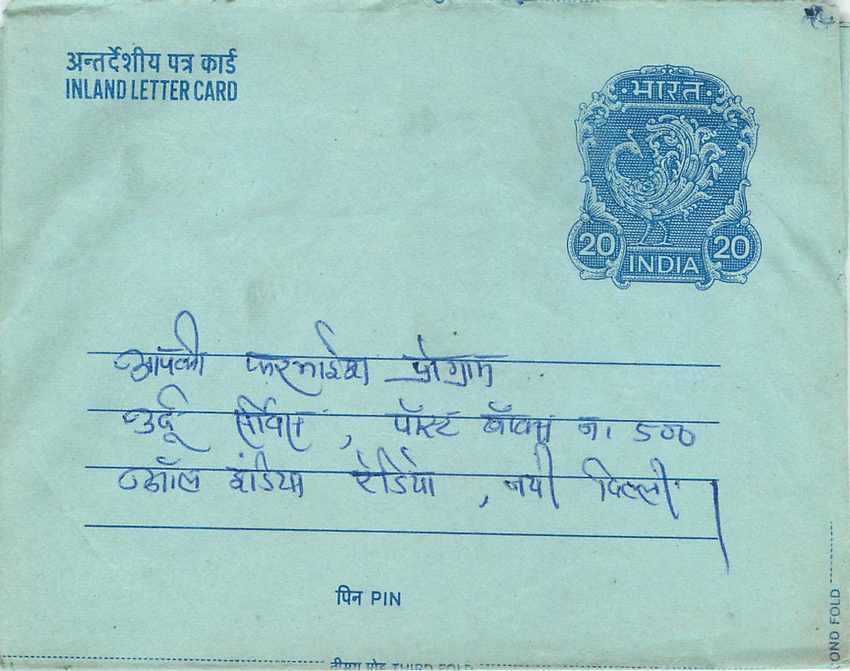 अन्तर्देशीय पत्र कार्ड
INLAND LETTER CARD
भारत
20 20
INDIA
आपकी फरमाईश प्रोग्राम
उर्दू सर्विस, पॉस्ट बॉक्स नं। 500
ऑल इंडिया रेडियो, नयी दिल्ली।
पिन PIN
THIRD FOLD
OND FOLD